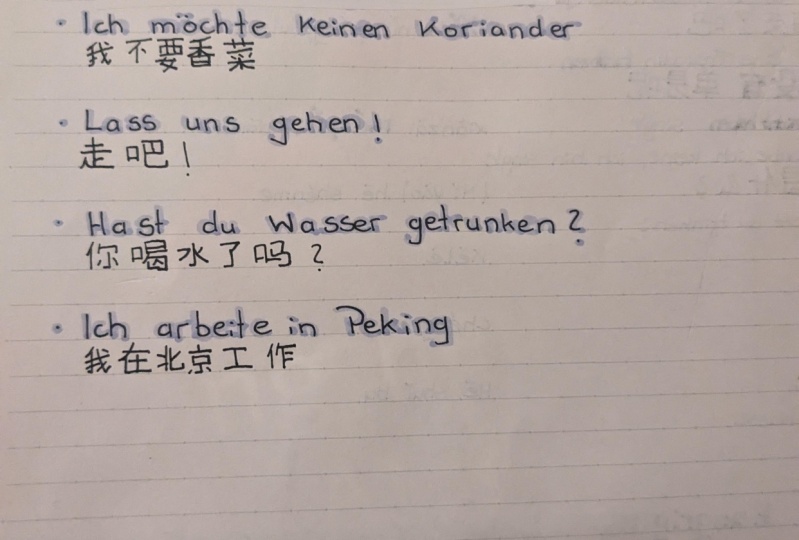 · Ich möchte keinen Koriander
我不要香菜
· Lass uns gehen!
走吧!
· Hast du Wasser getrunken?
你喝水了吗?
· Ich arbeite in Peking
我在北京工作